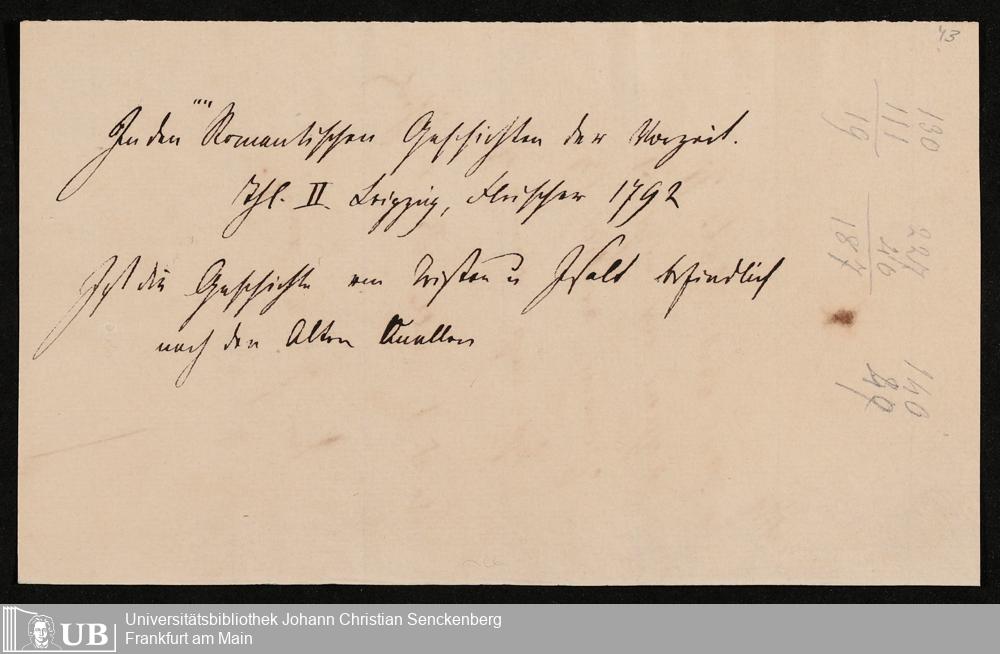 In den "" Romantischen Geschichten der Vorzeit.
Thl. II. Leipzig, Fleischer 1792
Ist die Geschichte von Tristan u Isalt befindlich
nach den Alten Quellen
43
130
111
19
227
46
187
140
UB
Universitätsbibliothek Johann Christian Senckenberg
Frankfurt am Main